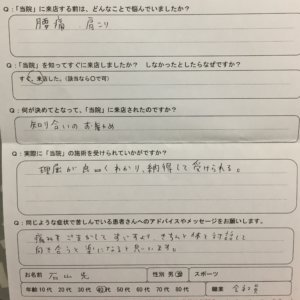 Q:「当院」に来店する前は、どんなことで悩んでいましたか?
腰痛 . 肩こり
Q:「当院」を知ってすぐに来店しましたか? しなかったとしたらなぜですか?
すぐ来店した。(該当なら〇で可)
Q:何が決めてとなって、「当院」に来店されたのですか?
知り合いのお勧め
Q:実際に「当院」の施術を受けられていかがですか?
理屈が良くわかり、納得して受けられる。
Q:同じような症状で苦しんでいる患者さんへのアドバイスやメッセージをお願いします。
痛みをごまかして すごすより きちんと体と対話して
向き合うと楽になると思います。
お名前 石山 性別 男 女 スポーツ
年齢 10代 20代 30代 40代 50代 60代 70代 80代 職業